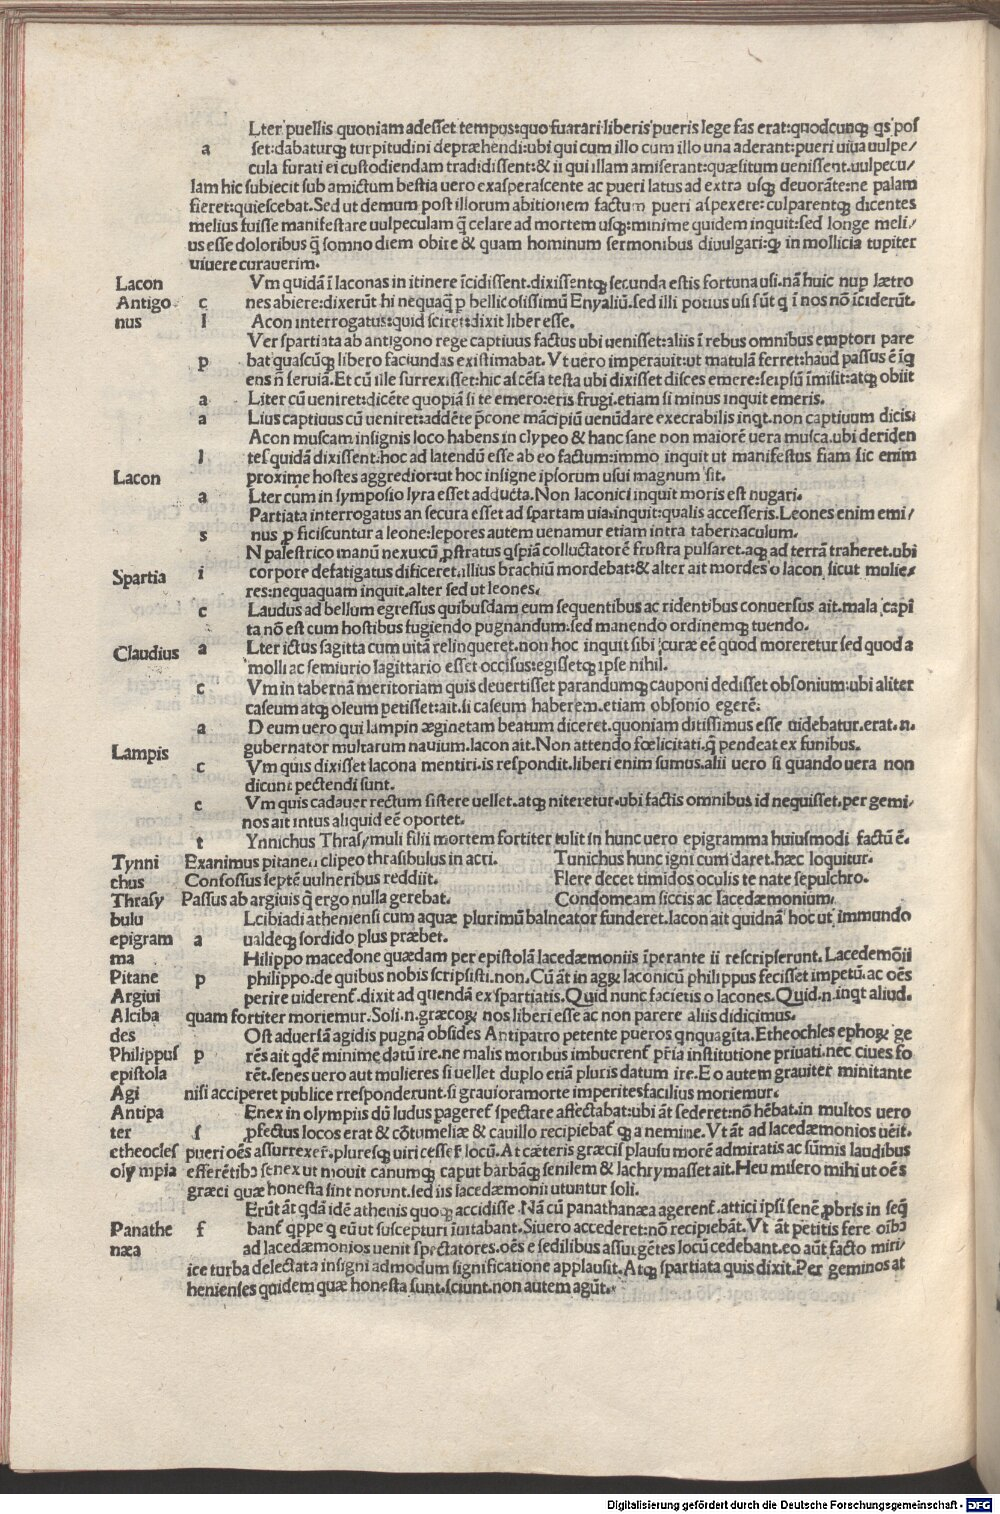 Lter puellis quoniam adesset tempus:quo fuarari liberis pueris lege fas erat:quodcunqꝫ qs pos
a set:dabaturqꝫ turpitudini depræhendi:ubi qui cum illo cum illo una aderant:pueri uiua uulpe/
cula furati ei custodiendam tradidissent:& ii qui illam amiserant:quæsitum uenissent.uulpecu/
lam hic subiecit sub amictum bestia uero exasperascente ac pueri latus ad extra usqꝫ deuorāte:ne palam
fieret:quiescebat.Sed ut demum post illorum abitionem factum pueri aspexere:culparentqꝫ dicentes
melius fuisse manifestare uulpeculam q̃ celare ad mortem usqꝫ:minime quidem inquit:sed longe meli/
us esse doloribus q̃ somno diem obire & quam hominum sermonibus diuulgari:qꝫ in mollicia tupiter
uiuere curauerim.
Lacon Vm quidā ī laconas in itinere īcidissent.dixissentqꝫ secunda estis fortuna usi.nā huic nup lætro
Antigo c nes abiere:dixerūt hi nequaq̃ p bellicosissimū Enyaliū.sed illi potius usi sūt q ī nos nō īciderūt.
nus l Acon interrogatus:quid sciret:dixit liber esse.
Ver spartiata ab antigono rege captiuus factus ubi uenisset:aliis ī rebus omnibus emptori pare
p bat quascūqꝫ libero faciundas existimabat.Vt uero imperauit:ut matulā ferret:haud passus ē īq
ens ñ seruiā.Et cū ille surrexisset:hic ascēsa testa ubi dixisset disces emere:seipsū īmisit:atqꝫ obiit
a Liter cū ueniret:dicēte quopiā si te emero:eris frugi.etiam si minus inquit emeris.
a Lius captiuus cū ueniret:addēte p̄cone mācipiū uenūdare execrabilis inqt.non captiuum dicis:
Acon muscam insignis loco habens in clypeo & hanc sane non maiorē uera musca.ubi deriden
l tes quidā dixissent:hoc ad latendū esse ab eo factum:immo inquit ut manifestus fiam sic enim
Lacon proxime hostes aggredior:ut hoc insigne ipsorum usui magnum sit.
a Lter cum in symposio lyra esset adducta.Non laconici inquit moris est nugari.
Partiata interrogatus an secura esset ad spartam uia:inquit:qualis accesseris.Leones enim emi/
s nus ꝓ ficiscuntur a leone:lepores autem uenamur etiam intra tabernaculum.
N palestrico manū nexu:cū ꝓstratus qspiā colluctatorē frustra pulsaret.aqꝫ ad terrā traheret.ubi
Spartia i corpore defatigatus dificeret.illius brachiū mordebat:& alter ait mordes o lacon sicut mulie/
res:nequaquam inquit.alter sed ut leones.
c Laudus ad bellum egressus quibusdam eum sequentibus ac ridentibus conuersus ait.mala capī
ta nō est cum hostibus fugiendo pugnandum.sed manendo ordinemqꝫ tuendo.
Claudius a Lter ictus sagitta cum uitā relinqueret.non hoc inquit sibi curæ eē quod moreretur sed quod a
molli ac semiurio sagittario esset occisus:egissetqꝫ ipse nihil.
c Vm in tabernā meritoriam quis deuertisset parandumqꝫ cauponi dedisset obsonium:ubi aliter
caseum atqꝫ oleum petisset:ait.si caseum haberem.etiam obsonio egerē:
a D eum uero qui lampin æginetam beatum diceret.quoniam ditissimus esse uidebatur.erat.n.
Lampis gubernator multarum nauium.lacon ait.Non attendo fœlicitati.q̃ pendeat ex funibus.
c Vm quis dixisset lacona mentiri.is respondit.liberi enim sumus.alii uero si quando uera non
dicunt pectendi sunt.
c Vm quis cadauer rectum sistere uellet.atqꝫ niteretur.ubi factis omnibus id nequisset.per gemi/
nos ait intus aliquid eē oportet.
t Ynnichus Thrasymuli filii mortem fortiter tulit in hunc uero epigramma huiusmodi factū ē.
Tynni Exanimus pitanen clipeo thrasibulus in acri. Tunichus hunc igni cum daret.hæc loquitur.
chus Consossus septē uulneribus reddiit. Flere decet timidos oculis te nate sepulchro.
Thrasy Passus ab argiuis q̃ ergo nulla gerebat. Condomeam siccis ac lacedæmonium.
bulu Lcibiadi atheniensi cum aquæ plurimū balneator funderet.lacon ait quidnā hoc ut immundo
epigram a ualdeqꝫ sordido plus præbet.
ma Hilippo macedone quædam per epistolā lacedæmoniis īperante ii rescripserunt.Lacedemōii
Pitane p philippo.de quibus nobis scripsisti.non.Cū āt in agꝝ laconicū philippus fecisset impetū.ac oēs
Argiui perire uiderent̃.dixit ad quendā ex spartiatis.Quid nunc facietis o lacones.Quid.n.inqt aliud.
Alciba quam fortiter moriemur.Soli.n.græcoꝝ nos liberi esse ac non parere aliis didicimus.
des Ost aduersā agidis pugnā obsides Antipatro petente pueros qnquagīta.Etheochles ephoꝝ ge
Philippus p rēs ait qdē minime datū ire.ne malis moribus imbuerent̃ p̄ria institutione priuati.nec ciues fo
epistola rēt.senes uero aut mulieres si uellet duplo etiā pluris datum ire.Eo autem grauiter minitante
Agi nisi acciperet publice rresponderunt.si grauiora morte imperites facilius moriemur.
Antipa Enex in olympiis dū ludus pageret̃ spectare affectabat:ubi āt sederet:nō hēbat.in multos uero
ter s ꝓfectus locos erat & cōtumeliæ & cauillo recipiebat̃ qꝫ a nemine.Vt āt ad lacedæmonios uēit.
etheocles pueri oēs assurrexer̃.pluresqꝫ uiri cesser̃ locū.At cæteris græcis plausu morē admiratis ac sūmis laudibus
olympia efferētibꝫ senex ut mouit canumqꝫ caput barbāqꝫ senilem & lachrymasset ait.Heu misero mihi ut oēs
græci quæ honesta sint norunt.sed iis lacedæmonii utuntur soli.
Erūt āt qdā idē athenis quoqꝫ accidisse.Nā cū panathanæa agerent̃.attici ipsi senē ꝓbris in seq̃
Panathe s bant̃ qppe q eū ut suscepturi īuitabant.Siuero accederet:nō recipiebāt.Vt āt petitis fere oībꝫ
næa ad lacedæmonios uenit spectatores.oēs e sedilibus assurgētes locū cedebant.eo aūt facto miri/
ice turba delectata insigni admodum significatione applausit.Atqꝫ spartiata quis dixit.Per geminos at
henienses quidem quæ honesta sunt.sciunt.non autem agūt.
Digitalisierung gefördert durch die Deutsche Forschungsgemeinschaft - DFG